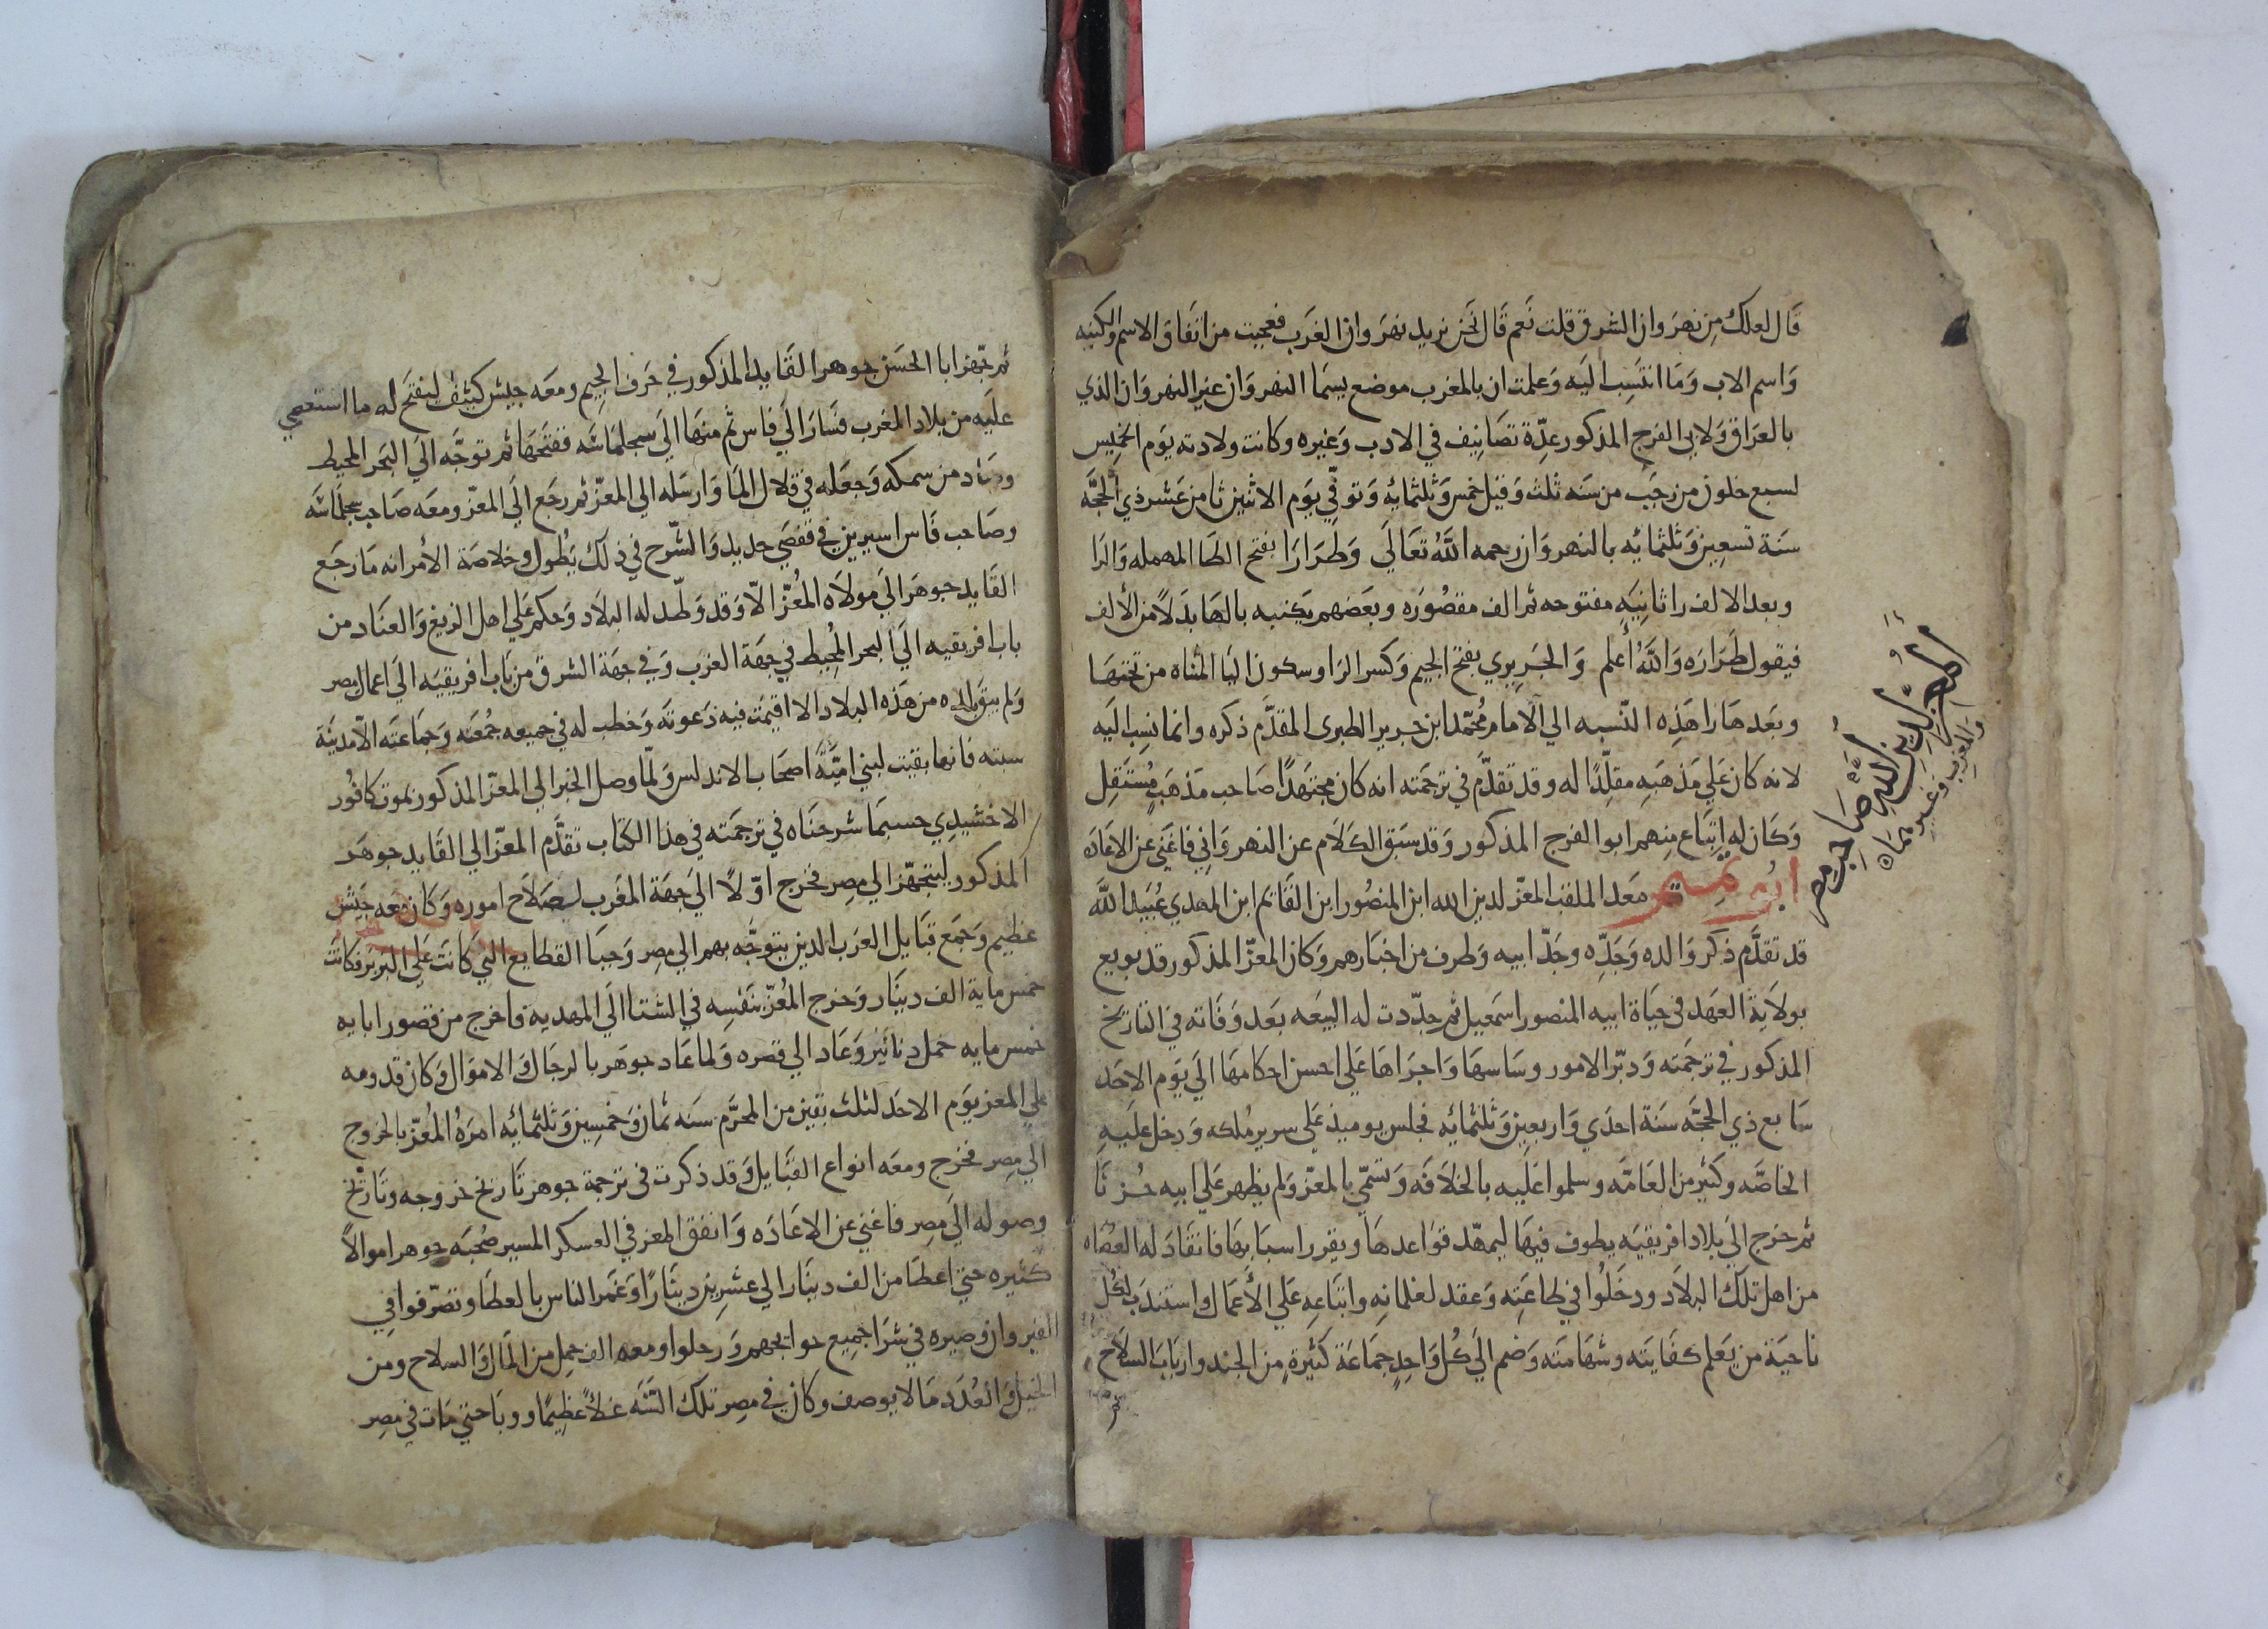 قال لعلك من نهروان الشرق قلت نعم قال نحن نريد نهروان الغرب فعجبت من اتفاق الاسم والكنيه
واسم الاب وما انتسب اليه وعلمت ان بالمغرب موضع يسما النهروان غير النهروان الذي
بالعراق ولابي الفرج المذكور عدّة تصانيف في الادب وغيره وكانت ولادته يوم الخميس
لسبع خلون من رجب من سنه ثلث وقيل خمس وثلثمايه وتوفّي يوم الاثنين ثامن عشر ذي الحجّه
سنة تسعين وثلثمائه بالنهروان رحمه الله تعالى وطرارا بفتح الطا المهمله والرا
وبعد الالف را ثانيه مفتوحه ثم الف مقصوره وبعضهم يكتبه بالها بدلاً من الألف
فيقول طراره والله أعلم والجريري بفتح الجيم وكسر الرا وسكون اليا المثناه من تحتها
وبعدها را هذه النّسبه الي الامام محُمّد ابن جرير الطبرى المقدّم ذكره وانما نسب اليه
لانه كان علي مذهبه مقلّدًا له وقد تقدّم في ترجمته انه كان مجتهدًا صاحب مذهب مُستقل
وكان له اتباع منهم ابو الفرج المذكور وقد سبق الكلام عن النهرواني فاغني عن الاعاده
ابو تميم معد الملقب المعزّ لدين الله ابن المنصور ابن القائم ابن المهدي عُبيد الله
قد تقدّم ذكر والده وجدّه وجدّ ابيه وطرف من اخبارهم وكان المعزّ المذكور قد بويع
بولاية العهد في حياة ابيه المنصور اسمعيل ثم جدّدت له البيعه بعد وفاته في التاريخ
المذكور في ترجمته ودبّر الامور وساسها واجراها علي احسن احكامها الي يوم الاحد
سابع ذي الحجّه سنة احدي واربعين وثلثمائه فجلس يوميذ على سرير مُلكه ودخل عليه
الخاصّه وكثير من العامّه وسلموا عليه بالخلافه وتسمّي بالمعزّ ولم يظهر علي ابيه حُزنًا
ثم خرج الي بلاد افريقيه يطوف فيها ليمهّد قواعدها ويقرر اسبابها فانقاد له العُصاه
من اهل تلك البلاد ودخلُوا في طاعته وعقد لغلمانه واتباعه علي الأعمال واستندب لكل
ناحية من يعلم كفايته وشهامته وضم الي كُل واحدٍ جماعة كثيرةٍ من الجند وارباب السلاح
ثم
المعز لدين الله صاحب مصر
والغرب وغيرهماه
ثم جهّز ابا الحسن جوهر القايد المذكور في حرف الجيم ومعه جيش كثيف ليفتح له ما استعصي
عليه من بلاد المغرب فسار الي فاس ثم منها الي سجلماسّه ففتحها ثم توجّه الي البحر المحيط
وصاد من سمكه وجعله في قلال الما وارسله الي المعزّ ثم رجع الي المعزّ ومعه صاحب سجلماسّه
وصاحب فاس اسيرين في قفصي حديد والشّرح في ذلك يطُول وخلاصة الأمر انه ما رجع
القايد جوهر الي مولاه المُعزّ الاّ وقد وطّد له البلاد وحكم علي اهل الزيغ والعناد من
باب افريقيه الي البحر المُحيط في جهة الغرب وفي جهة الشرق من باب افريقيه الي اعمال مصر
ولم يبق بلده من هذه البلاد الا اقيمت فيه دعوته وخطب له في جميعه جُمعته وجماعته الاّ مدينة
سبته فانها بقيت لبني اميّة اصحاب الاندلس ولمّا وصل الخبر الى المعزّ المذكور بموت كافور
الاخشيدي حسبما شرحناه في ترجمته في هذا الكتاب تقدّم المعزّ الي القايد جوهر
المذكور ليتجهّز الي مصر فخرج اوّلاً الي جهة المغرب لصلاح اموره وكان معه جيش
عظيم وجمع قبايل العرب الذين يتوجّه بهم الي مصر وجبا القطايع التي كانت علي البربر فكانت
خمس ماية الف دينار وخرج المُعزّ بنفسه في الشتا الي المهديه فاخرج من قصور ابايه
خمس مايه حمل دنانير وعاد الي قصره ولما عاد جوهر بالرجال والاموال وكان قدومه
علي المعز يوم الاحد لثلث بقين من المحرّم سنه ثمان وخمسين وثلثمائه امرهُ المُعزّ بالخروج
الي مصر فخرج ومعه انواع القبايل وقد ذكرت في ترجمة جوهر تاريخ خروجه وتاريخ
وصوله الي مصر فاغني عن الاعاده وانفق المعز في العسكر المسير صُحبه جوهر اموالاً
كثيره حتي اعطا من الف دينار الي عشرين دينارًا وغمر الناس بالعطا وتصرّفوا في
القيروان وصيره في شرا جميع حوايجهم ورحلوا ومعه الف حمل من المال والسلاح ومن
الخيل والعُدد ما لا يوصف وكان في مصر تلك السّنه غلاًّ عظيمًا ووبا حتي مات في مصر